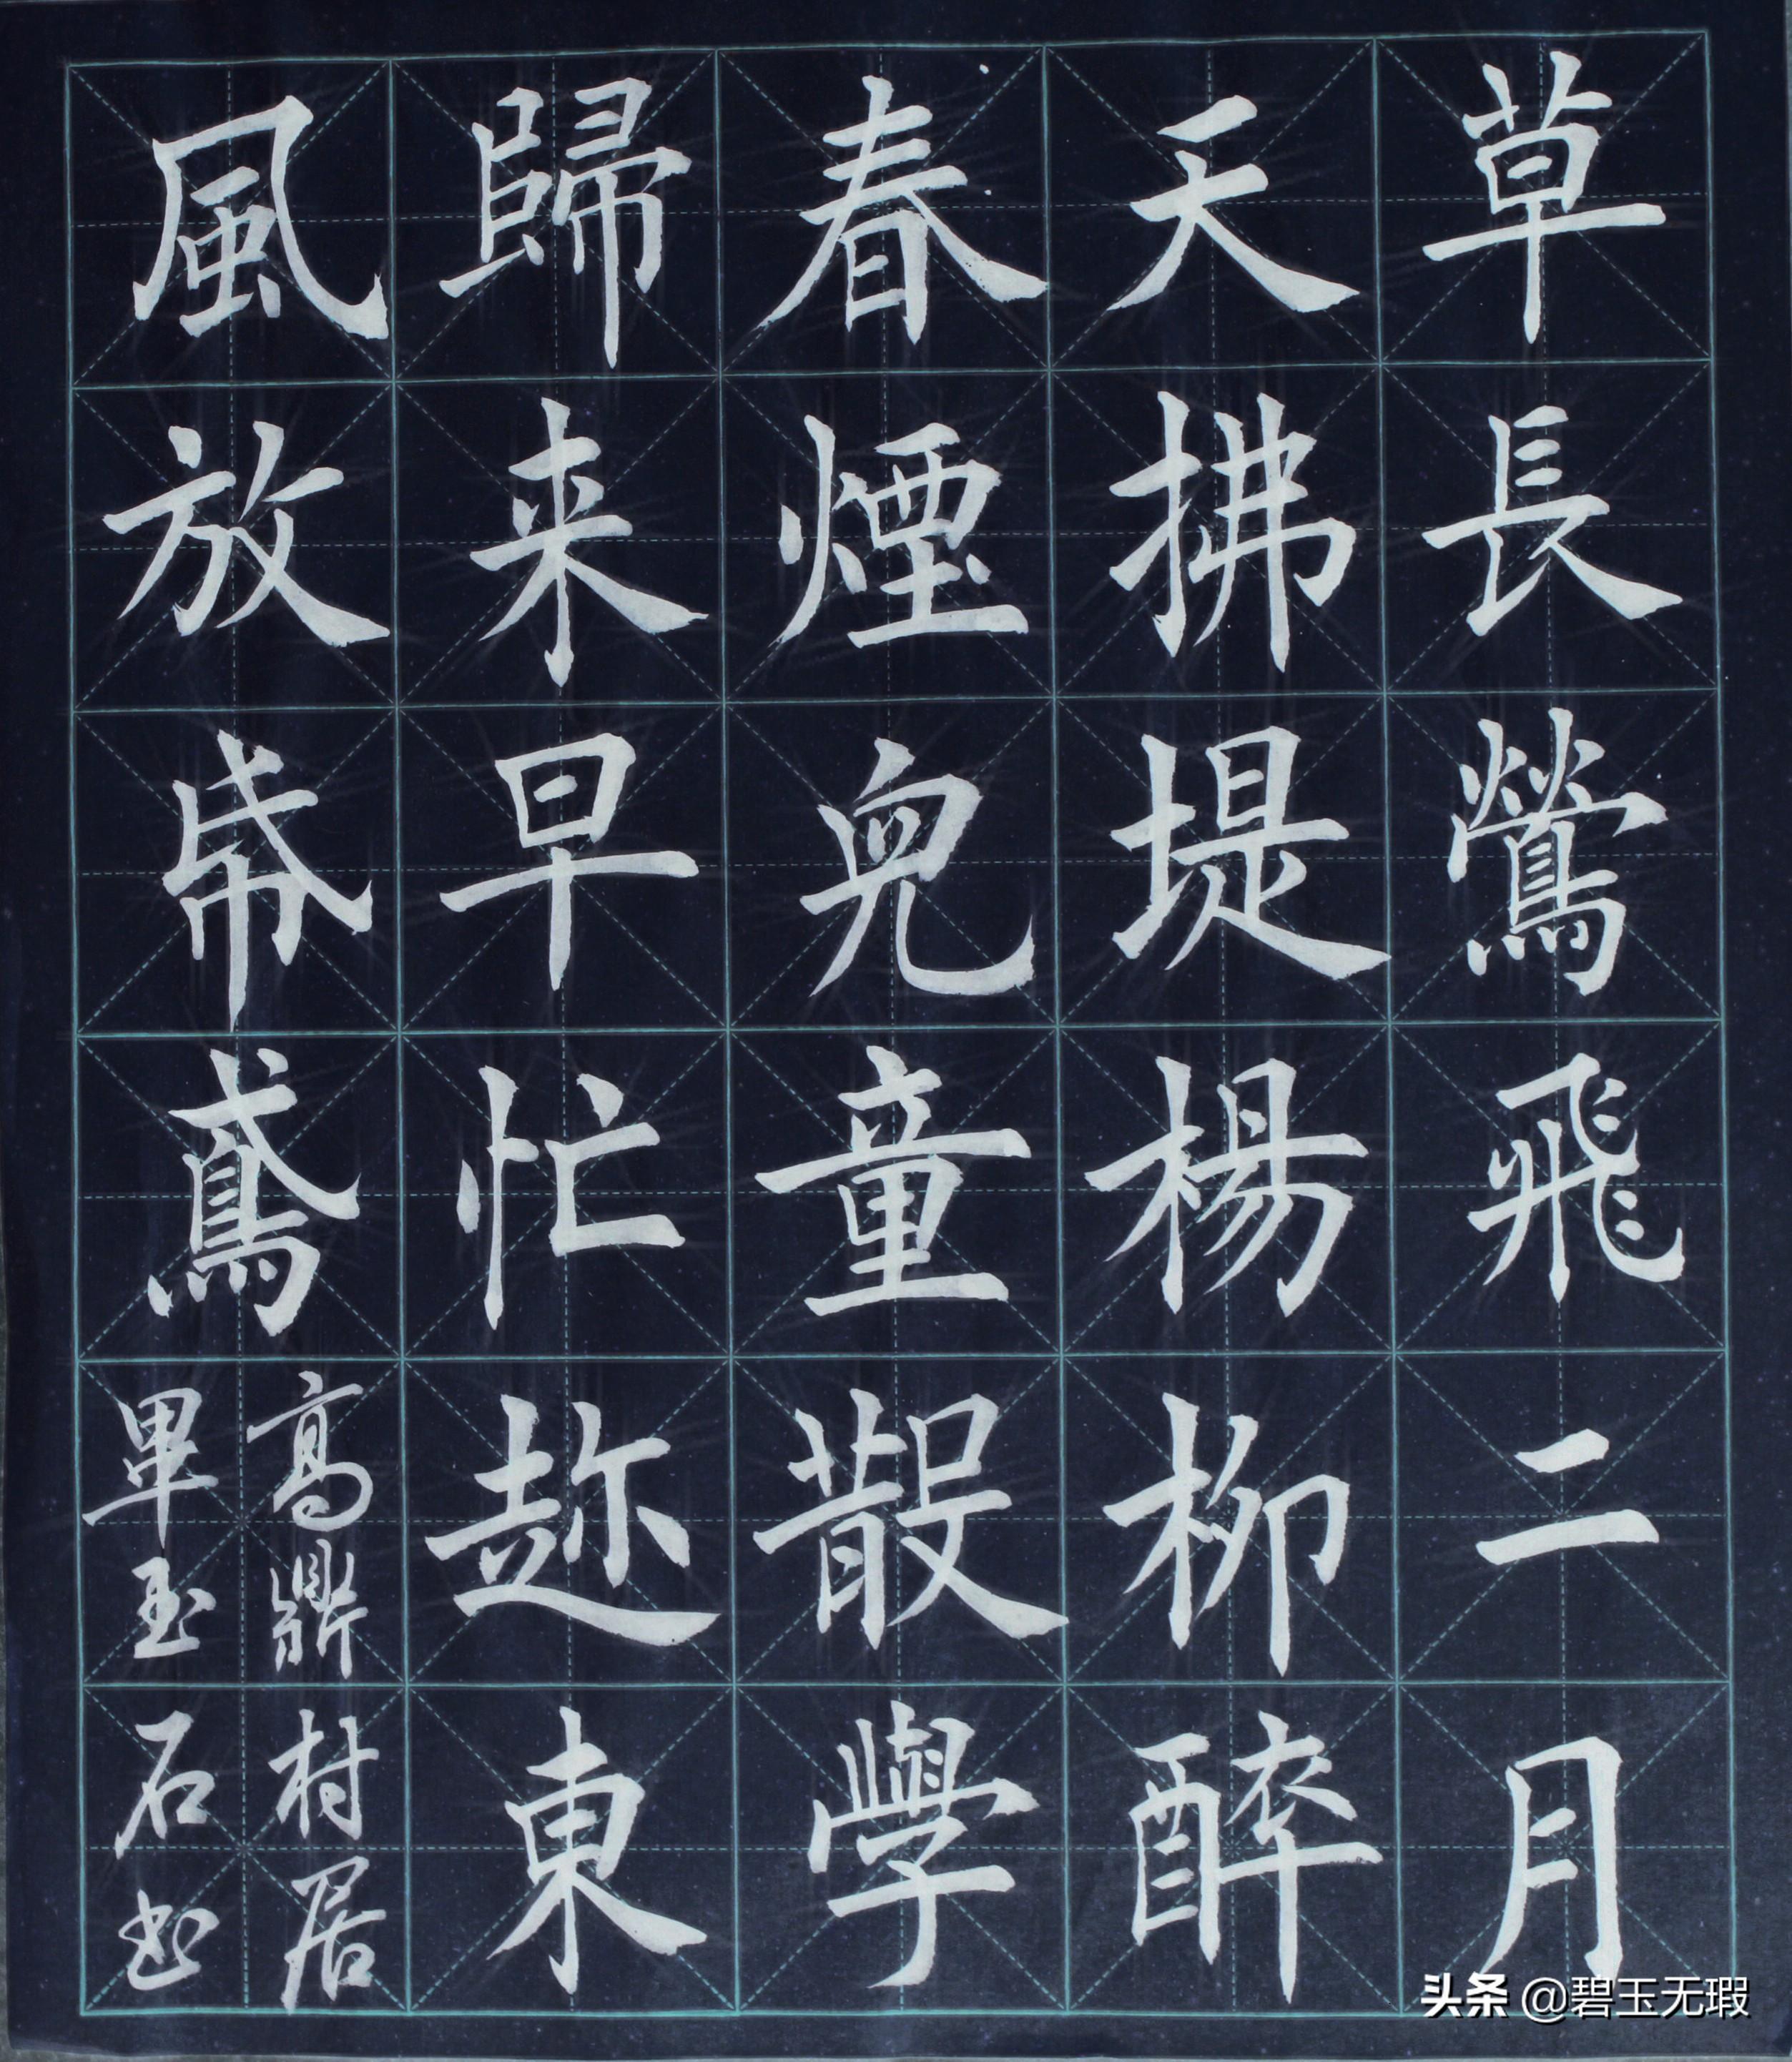 草長鶯飛二月
天拂堤楊柳醉
春煙兒童散學
歸来早忙趂東
風放帋鳶
高鼎村居
畢玉石书
头条 @碧玉无瑕